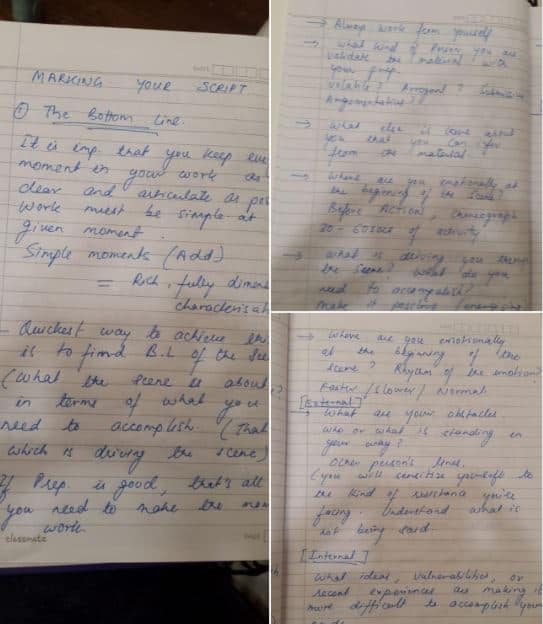 MARKING YOUR SCRIPT
① The Bottom Line.
It is imp. that you keep
moment in your work as
clear and articulate as
work must be simple at
given moment.
Simple moments (Add)
= Rich, fully
- Quickest way to achieve
is to find B.L of the
(what the scene is about
in terms of what you
need to accomplish. (That
which is driving the scene)
If Prep. is good, that's all
you need to make the
work.
classmate
→ Always work from yourself
→ what kind of Person you are
validate the material with
your prep.
volatile? Arrogant? Submissive
Argumentative?
→ what else is there about
you that you can
from the material.
→ Where are you emotionally at
the beginning of the scene?
Before ACTION, Choreograph
30 - 60 secs of activity
→ what is driving you
the scene? what do you
need to accomplish?
make it positive /
→ where are you emotionally
at the beginning of the
scene? Rhythm of the emotion?
Faster / slower / Normal.
[External]
→ What are your obstacles.
who or what is standing in
your way?
Other person's lines.
(you will sensitize yourself to
the kind of resistance you're
facing. Understand what is
not being said.
[Internal]
what ideas, vulnerabilities, or
recent experiences are making it
more difficult to accomplish your